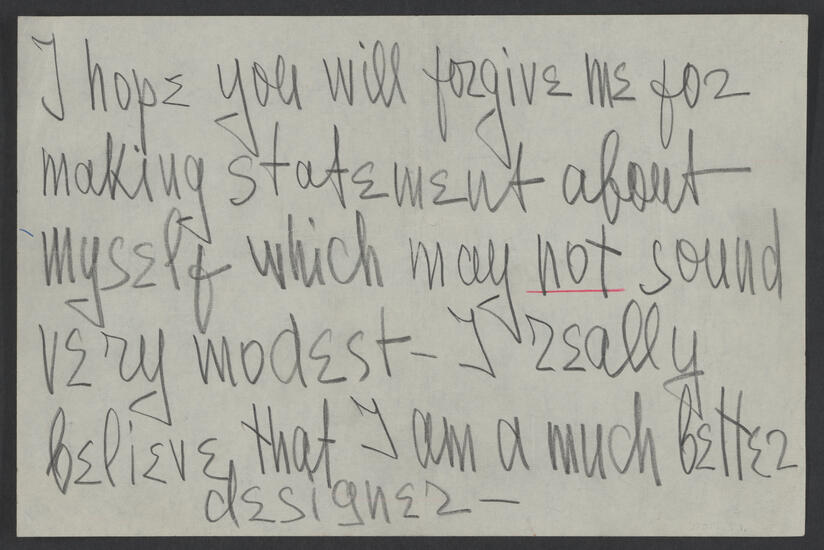 I hope you will forgive me for
making statement about
myself which may not sound
very modest - I really
believe that I am a much better
designer -